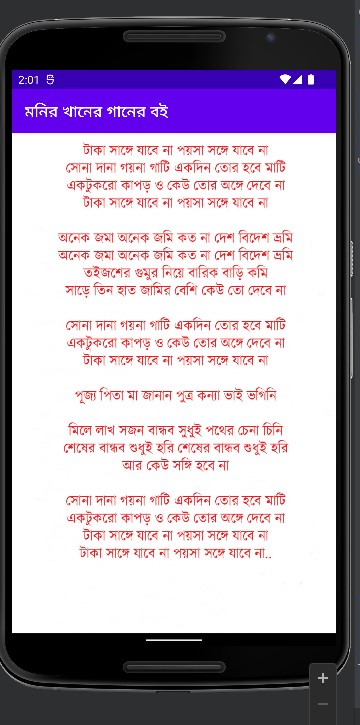 2:01
মনির খানের গানের বই
টাকা সাঙ্গে যাবে না পয়সা সঙ্গে যাবে না
সোনা দানা গয়না গাটি একদিন তোর হবে মাটি
একটুকরো কাপড় ও কেউ তোর অঙ্গে দেবে না
টাকা সাঙ্গে যাবে না পয়সা সঙ্গে যাবে না
অনেক জমা অনেক জমি কত না দেশ বিদেশ ভ্রমি
অনেক জমা অনেক জমি কত না দেশ বিদেশ ভ্রমি
তইজশের গুমুর নিয়ে বারিক বাড়ি কমি
সাড়ে তিন হাত জামির বেশি কেউ তো দেবে না
সোনা দানা গয়না গাটি একদিন তোর হবে মাটি
একটুকরো কাপড় ও কেউ তোর অঙ্গে দেবে না
টাকা সাঙ্গে যাবে না পয়সা সঙ্গে যাবে না
পূজ্য পিতা মা জানান পুত্র কন্যা ভাই ভগিনি
মিলে লাখ সজন বান্ধব সুধুই পথের চেনা চিনি
শেষের বান্ধব শুধুই হরি শেষের বান্ধব শুধুই হরি
আর কেউ সঙ্গি হবে না
সোনা দানা গয়না গাটি একদিন তোর হবে মাটি
একটুকরো কাপড় ও কেউ তোর অঙ্গে দেবে না
টাকা সাঙ্গে যাবে না পয়সা সঙ্গে যাবে না
টাকা সাঙ্গে যাবে না পয়সা সঙ্গে যাবে না..